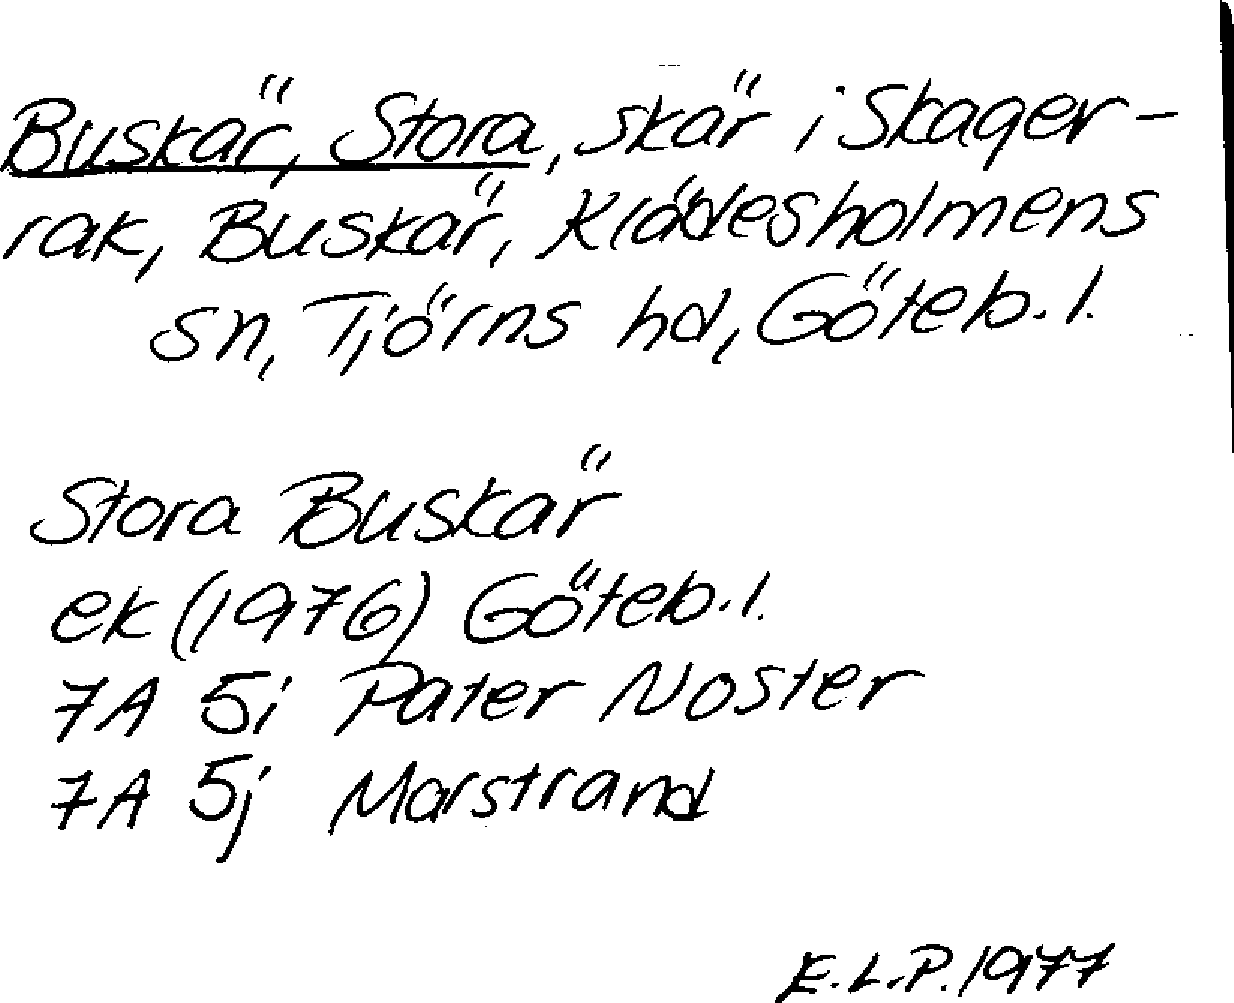 Buskär, Stora, skär i Skager-
rak, Buskär, Klädesholmens
sn, Tjörns hd, Göteb. l.
Stora Buskär
ek (1976) Göteb. l.
7A 5i Pater Noster
7A 5j Marstrand
E.L.P. 1977